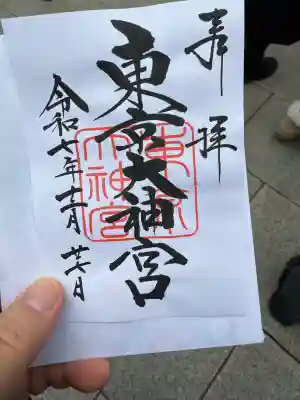 奉拝
東京大神宮
東京
大神宮
令和七年十二月廿七日